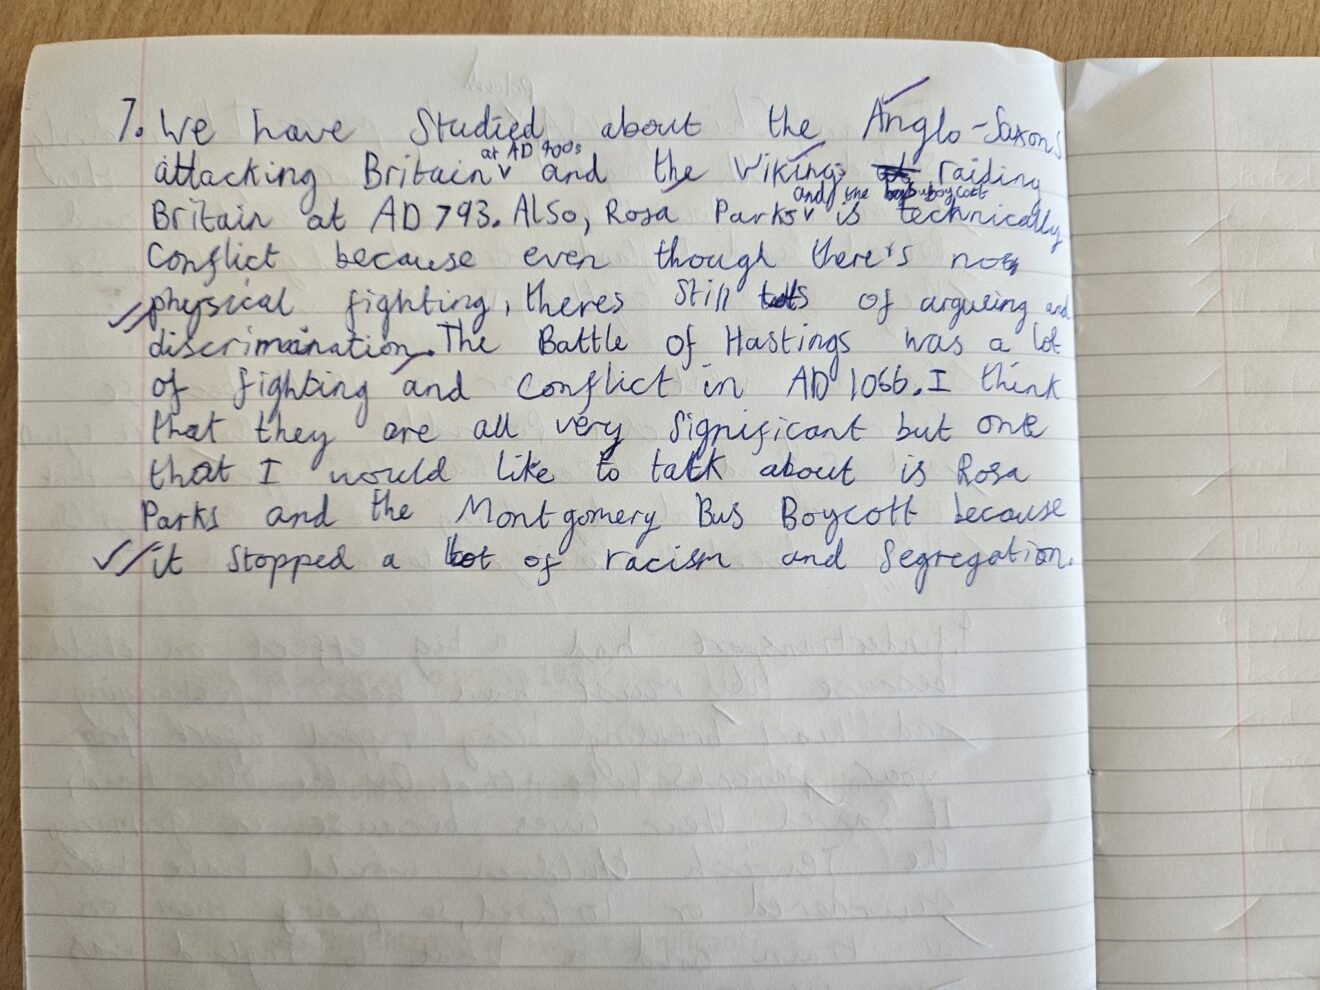 7. We have studied about the Anglo-Saxons
at AD 400s
attacking Britain and the Vikings raiding
and the boycott
Britain at AD 793. Also, Rosa Parks is technically
Conflict because even though there's not
physical fighting, theres still lots of argueing and
discrimination. The Battle of Hastings was a lot
of fighting and conflict in AD 1066. I think
that they are all very significant but one
that I would like to talk about is Rosa
Parks and the Montgomery Bus Boycott because
it stopped a lot of racism and segregation.